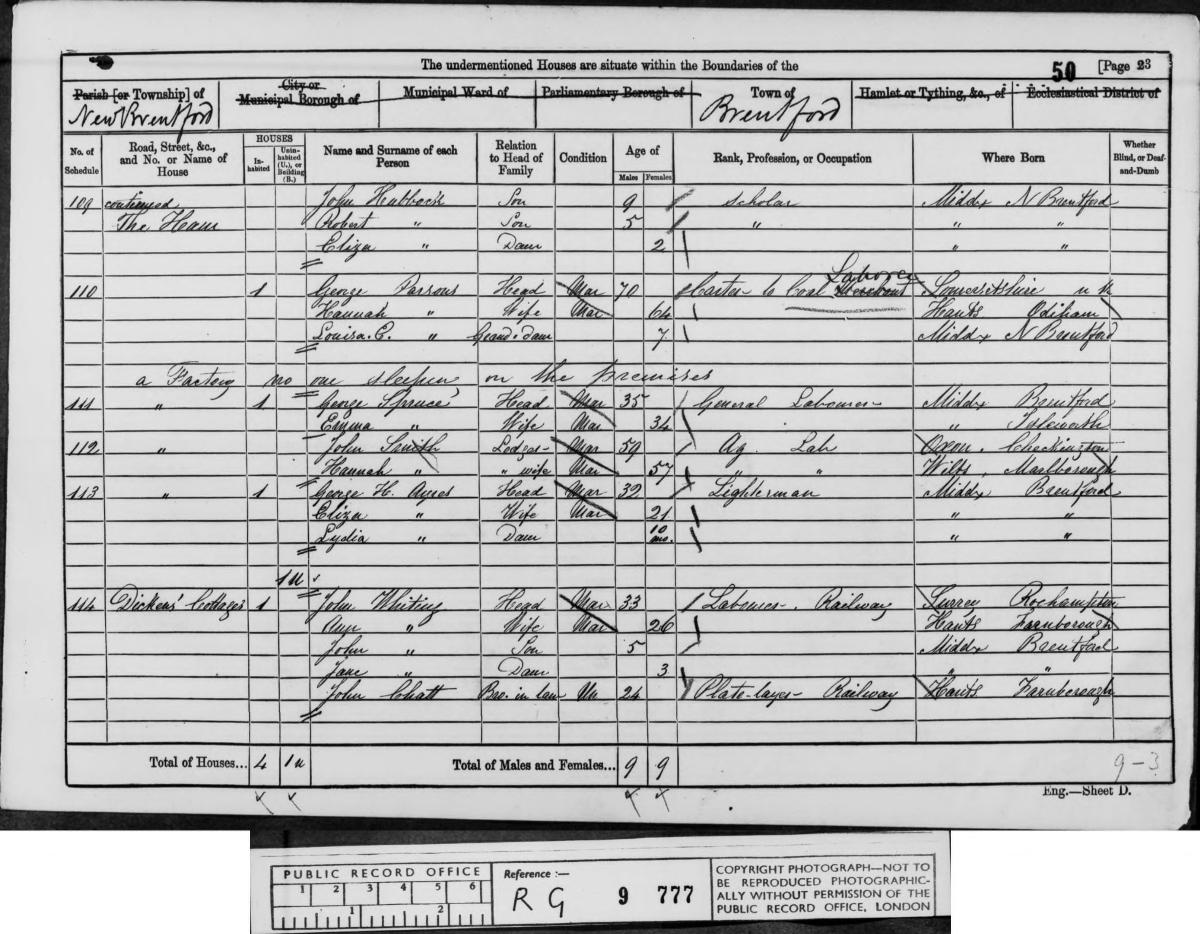 The undermentioned Houses are situate within the Boundaries of the
50 [Page 23
Parish [or Township] of
City or Municipal Borough of
Municipal Ward of
Parliamentary Borough of
Town of
Hamlet or Tything, &c., of
Ecclesiastical District of
New Brentford
Brentford
No. of Schedule
Road, Street, &c., and No. or Name of House
HOUSES
In-habited
Unin-habited (U.), or Building (B.)
Name and Surname of each Person
Relation to Head of Family
Condition
Age of
Males
Females
Rank, Profession, or Occupation
Where Born
Whether Blind, or Deaf-and-Dumb
109 continued John Hubbock Son 9 Scholar Middx N Brentford
The Ham Robert " Son 5 " " "
Eliza " Daur 2 " "
Laborer
110 1 George Parsons Head Mar 70 Carter to Coal Merchant Somersetshire n k
Hannah " Wife Mar 64 Hants Odiham
Louisa. C. " Grand-daur 7 Middx N Brentford
a Factory no one sleeping on the premises
111 " 1 George Spruce Head Mar 35 General Labourer Middx Brentford
Emma " Wife Mar 34 " Isleworth
112 " John Smith Lodger Mar 59 Ag. Lab Oxon.
Hannah " " wife Mar 57 " " Wilts, Marlborough
113 " 1 George H. Ayres Head Mar 32 Lighterman Middx Brentford
Eliza " Wife Mar 21 " "
Lydia " Daur 10 mo. " "
1 u
114 Dickens' Cottages 1 John Whiting Head Mar 33 Labourer - Railway Surrey Rochampton
Ann " Wife Mar 26 Hants Farnborough
John " Son 5 Middx Brentford
Jane " Daur 3 " "
John Chatt Bro. in law Un 24 Plate-layer Railway Hants Farnborough
Total of Houses... 4 1 u Total of Males and Females... 9 9
9 - 3
Eng.—Sheet D.
PUBLIC RECORD OFFICE
1 2 3 4 5 6
1 2
Reference :—
RG 9 777
COPYRIGHT PHOTOGRAPH—NOT TO
BE REPRODUCED PHOTOGRAPHIC-
ALLY WITHOUT PERMISSION OF THE
PUBLIC RECORD OFFICE, LONDON